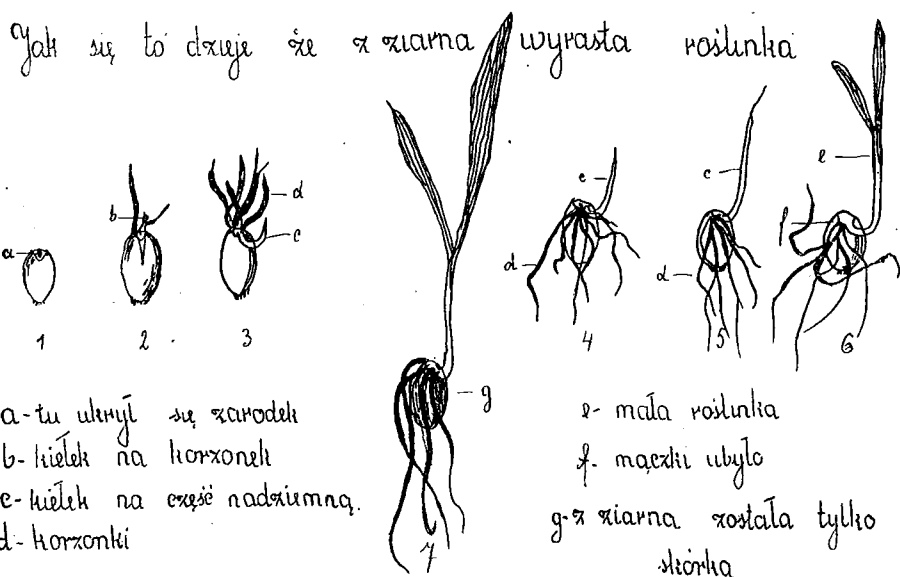 Jak się to dzieje że z ziarna wyrasta roślinka
a
b
d
c
1
2
3
g
7
c
d
4
c
d
5
e
f
6
a-tu ukrył się zarodek
b-kiełek na korzonek
c-kiełek na część nadziemną.
d-korzonki
e- mała roślinka
f- mączki ubyło
g-z ziarna została tylko
skórka